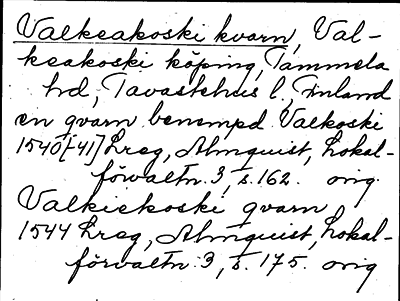 Valkeakoski kvarn, Val-
keakoski köping, Tammela
hd, Tavastehus l, Finland
en qvarn benempd Valkoski
1540[-41] Lreg, Almquist, Lokal-
förvaltn. 3, s. 162. orig.
Valkiekoski qvarn
1544 Lreg, Almquist, Lokal-
förvaltn. 3, s. 175. orig